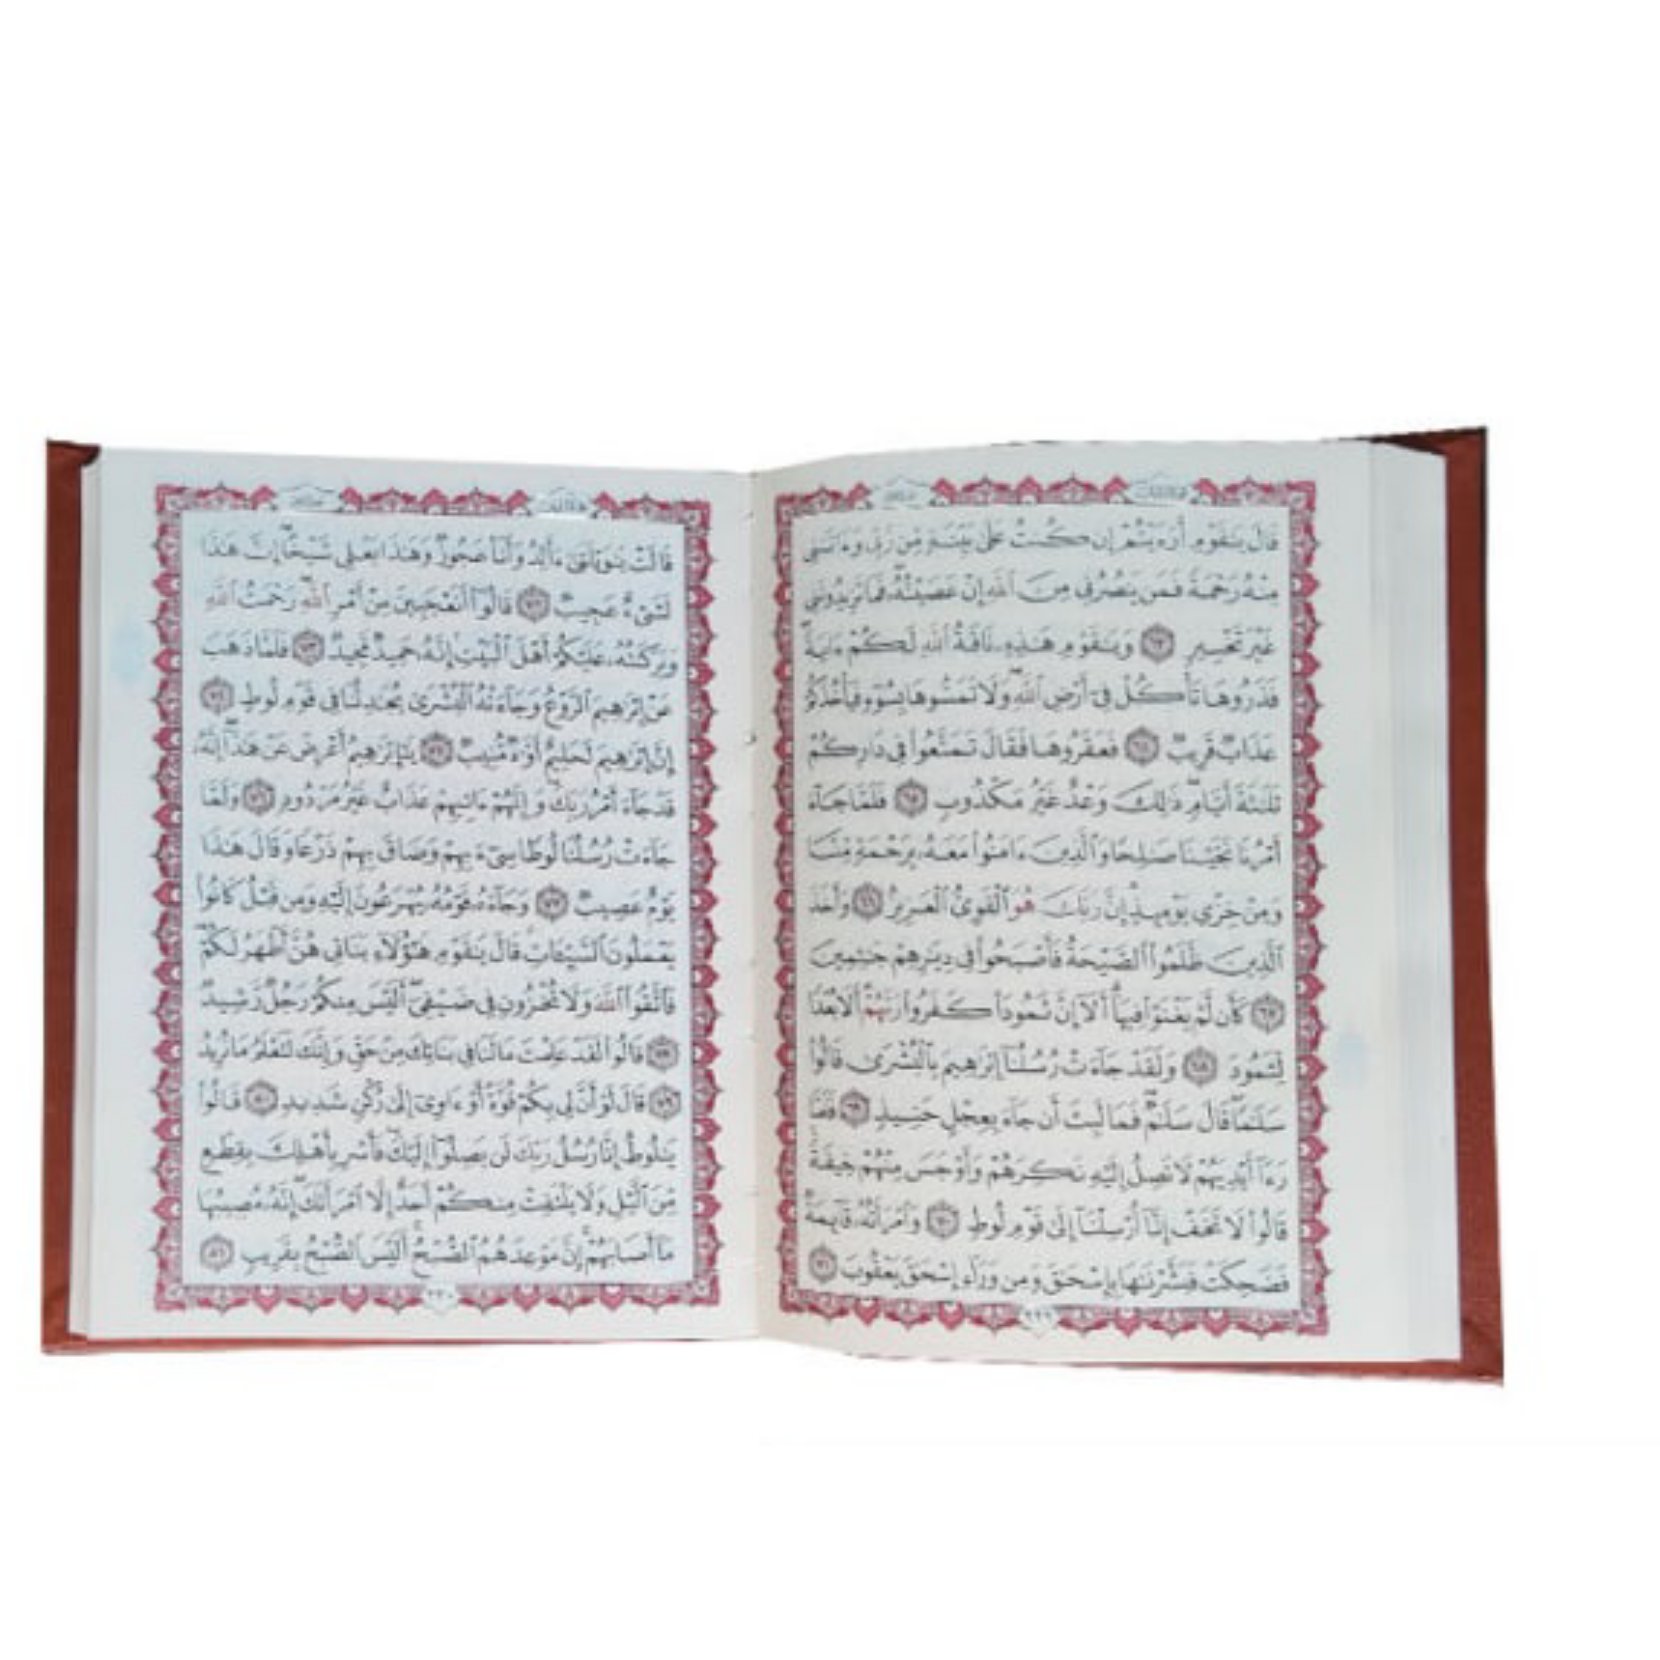 قَالَ يَـٰقَوْمِ أَرَءَيْتُمْ إِن كُنتُ عَلَىٰ بَيِّنَةٍ مِّن رَّبِّى وَءَاتَىٰنِى
مِنْهُ رَحْمَةً فَمَن يَنصُرُنِى مِنَ ٱللَّهِ إِنْ عَصَيْتُهُۥ فَمَا تَزِيدُونَنِى
غَيْرَ تَخْسِيرٍ ٦٣ وَيَـٰقَوْمِ هَـٰذِهِۦ نَاقَةُ ٱللَّهِ لَكُمْ ءَايَةً
فَذَرُوهَا تَأْكُلْ فِىٓ أَرْضِ ٱللَّهِ وَلَا تَمَسُّوهَا بِسُوٓءٍ فَيَأْخُذَكُمْ
عَذَابٌ قَرِيبٌ ٦٤ فَعَقَرُوهَا فَقَالَ تَمَتَّعُوا۟ فِى دَارِكُمْ
ثَلَـٰثَةَ أَيَّامٍ ذَٰلِكَ وَعْدٌ غَيْرُ مَكْذُوبٍ ٦٥ فَلَمَّا جَآءَ
أَمْرُنَا نَجَّيْنَا صَـٰلِحًا وَٱلَّذِينَ ءَامَنُوا۟ مَعَهُۥ بِرَحْمَةٍ مِّنَّا
وَمِنْ خِزْىِ يَوْمِئِذٍ إِنَّ رَبَّكَ هُوَ ٱلْقَوِىُّ ٱلْعَزِيزُ ٦٦ وَأَخَذَ
ٱلَّذِينَ ظَلَمُوا۟ ٱلصَّيْحَةُ فَأَصْبَحُوا۟ فِى دِيَـٰرِهِمْ جَـٰثِمِينَ
٦٧ كَأَن لَّمْ يَغْنَوْا۟ فِيهَآ أَلَآ إِنَّ ثَمُودَا۟ كَفَرُوا۟ رَبَّهُمْ أَلَا بُعْدًا
لِّثَمُودَ ٦٨ وَلَقَدْ جَآءَتْ رُسُلُنَآ إِبْرَٰهِيمَ بِٱلْبُشْرَىٰ قَالُوا۟
سَلَـٰمًا قَالَ سَلَـٰمٌ فَمَا لَبِثَ أَن جَآءَ بِعِجْلٍ حَنِيذٍ ٦٩ فَلَمَّا
رَءَآ أَيْدِيَهُمْ لَا تَصِلُ إِلَيْهِ نَكِرَهُمْ وَأَوْجَسَ مِنْهُمْ خِيفَةً
قَالُوا۟ لَا تَخَفْ إِنَّآ أُرْسِلْنَآ إِلَىٰ قَوْمِ لُوطٍ ٧٠ وَٱمْرَأَتُهُۥ قَآئِمَةٌ
فَضَحِكَتْ فَبَشَّرْنَـٰهَا بِإِسْحَـٰقَ وَمِن وَرَآءِ إِسْحَـٰقَ يَعْقُوبَ ٧١
٢٢٩
قَالَتْ يَـٰوَيْلَتَىٰٓ ءَأَلِدُ وَأَنَا۠ عَجُوزٌ وَهَـٰذَا بَعْلِى شَيْخًا إِنَّ هَـٰذَا
لَشَىْءٌ عَجِيبٌ ٧٢ قَالُوٓا۟ أَتَعْجَبِينَ مِنْ أَمْرِ ٱللَّهِ رَحْمَتُ ٱللَّهِ
وَبَرَكَـٰتُهُۥ عَلَيْكُمْ أَهْلَ ٱلْبَيْتِ إِنَّهُۥ حَمِيدٌ مَّجِيدٌ ٧٣ فَلَمَّا ذَهَبَ
عَنْ إِبْرَٰهِيمَ ٱلرَّوْعُ وَجَآءَتْهُ ٱلْبُشْرَىٰ يُجَـٰدِلُنَا فِى قَوْمِ لُوطٍ ٧٤
إِنَّ إِبْرَٰهِيمَ لَحَلِيمٌ أَوَّٰهٌ مُّنِيبٌ ٧٥ يَـٰٓإِبْرَٰهِيمُ أَعْرِضْ عَنْ هَـٰذَآ إِنَّهُۥ
قَدْ جَآءَ أَمْرُ رَبِّكَ وَإِنَّهُمْ ءَاتِيهِمْ عَذَابٌ غَيْرُ مَرْدُودٍ ٧٦ وَلَمَّا
جَآءَتْ رُسُلُنَا لُوطًا سِىٓءَ بِهِمْ وَضَاقَ بِهِمْ ذَرْعًا وَقَالَ هَـٰذَا
يَوْمٌ عَصِيبٌ ٧٧ وَجَآءَهُۥ قَوْمُهُۥ يُهْرَعُونَ إِلَيْهِ وَمِن قَبْلُ كَانُوا۟
يَعْمَلُونَ ٱلسَّيِّـَٔاتِ قَالَ يَـٰقَوْمِ هَـٰٓؤُلَآءِ بَنَاتِى هُنَّ أَطْهَرُ لَكُمْ
فَٱتَّقُوا۟ ٱللَّهَ وَلَا تُخْزُونِ فِى ضَيْفِىٓ أَلَيْسَ مِنكُمْ رَجُلٌ رَّشِيدٌ
٧٨ قَالُوا۟ لَقَدْ عَلِمْتَ مَا لَنَا فِى بَنَاتِكَ مِنْ حَقٍّ وَإِنَّكَ لَتَعْلَمُ مَا نُرِيدُ
٧٩ قَالَ لَوْ أَنَّ لِى بِكُمْ قُوَّةً أَوْ ءَاوِىٓ إِلَىٰ رُكْنٍ شَدِيدٍ ٨٠ قَالُوا۟
يَـٰلُوطُ إِنَّا رُسُلُ رَبِّكَ لَن يَصِلُوٓا۟ إِلَيْكَ فَأَسْرِ بِأَهْلِكَ بِقِطْعٍ
مِّنَ ٱلَّيْلِ وَلَا يَلْتَفِتْ مِنكُمْ أَحَدٌ إِلَّا ٱمْرَأَتَكَ إِنَّهُۥ مُصِيبُهَا
مَآ أَصَابَهُمْ إِنَّ مَوْعِدَهُمُ ٱلصُّبْحُ أَلَيْسَ ٱلصُّبْحُ بِقَرِيبٍ ٨١
٢٣٠